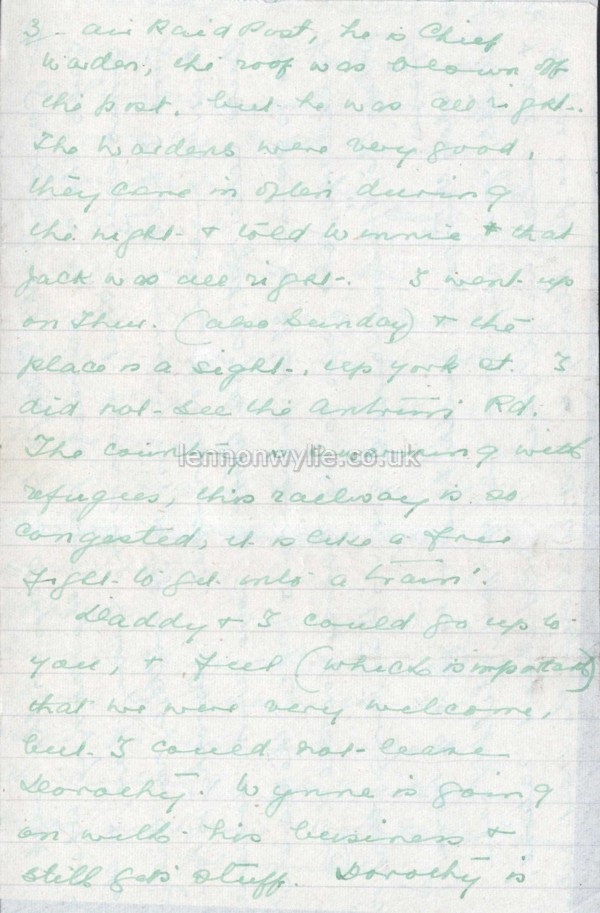 3 - air Raid Post, he is Chief
Warden, the roof was blown off
the post, but he was all right.
The Wardens were very good,
they came in often during
the night & told Winnie & that
Jack was all right. I went up
on Thur. (also Sunday) & the
place is a sight, up York st. I
did not see the Antrim Rd.
The country is swarming with
refugees, this railway is so
congested, it is like a free
fight to get into a train'.
Daddy & I could go up to
you, & feel (which is important)
that we were very welcome,
but I could not leave
Dorothy. Wynne is going
on with his business &
still gets stuff. Dorothy is
lennonwylie.co.uk